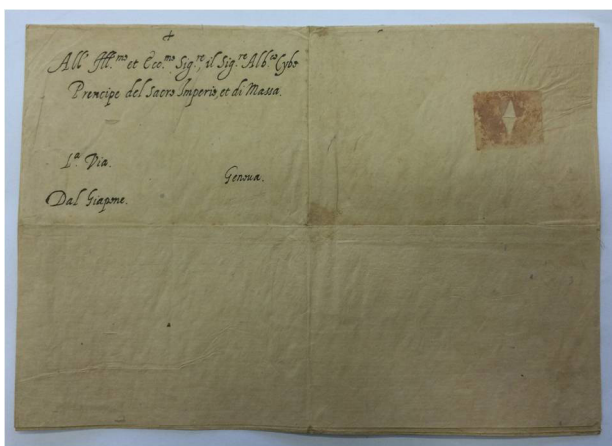 All' Ill.mo et Ecc.mo Sig.re, il Sig.re Alb.co Cybo
Prencipe del Sacro Imperio, et di Massa.
1.a Via.
Genoua.
Dal Giapone.